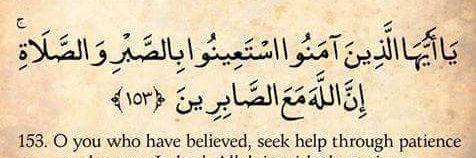 يَا أَيُّهَا الَّذِينَ آمَنُوا اسْتَعِينُوا بِالصَّبْرِ وَالصَّلَاةِ ۚ
إِنَّ اللَّهَ مَعَ الصَّابِرِينَ ﴿١٥٣﴾
153. O you who have believed, seek help through patience